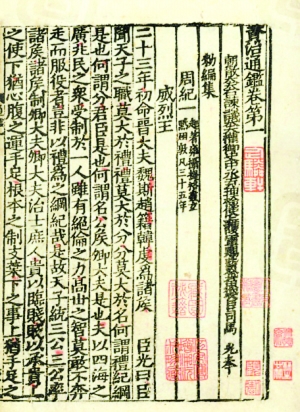 資治通鑑卷第一
朝散大夫右諫議大夫權御史中丞充理檢使上護軍賜紫金魚袋臣司馬 光奉
敕編集
周紀一 起著雍攝提格盡玄黓困敦凡三十五年
威烈王
二十三年初命晉大夫魏斯趙籍韓虔為諸侯 臣光曰臣
聞天子之職莫大於禮禮莫大於分分莫大於名何謂禮紀綱
是也何謂分君臣是也何謂名公侯卿大夫是也夫以四海之
廣兆民之衆受制於一人雖有絕倫之力高世之智莫敢不奔
走而服役者豈非以禮為之綱紀哉是故天子統三公三公率
諸侯諸侯制卿大夫卿大夫治士庶人貴以臨賤賤以承貴上
之使下猶心腹之運手足根本之制支葉下之事上猶手足之